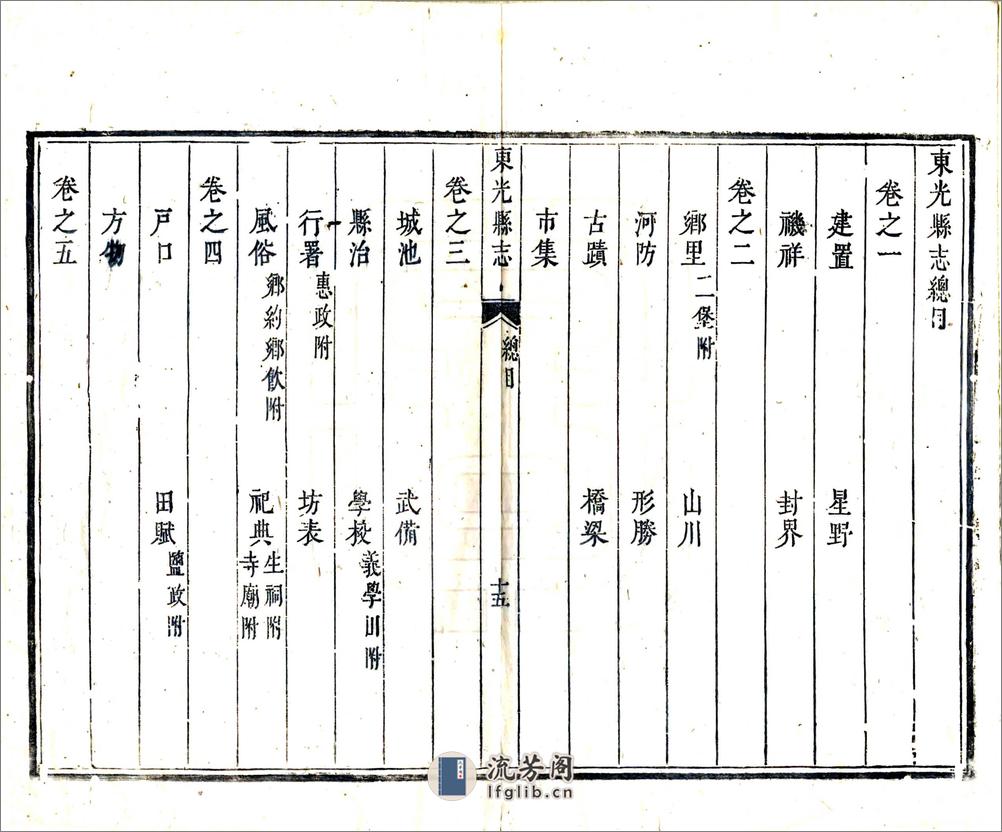 東光縣志總目
卷之一
建置 星野
禨祥 封界
卷之二
鄉里 二堡附 山川
河防 形勝
古蹟 橋梁
市集
東光縣志 總目 十五
卷之三
城池 武備
縣治 學校 義學田附
行署 惠政附 坊表
風俗 鄉約鄉飲附 祀典 生祠附 寺廟附
卷之四
戸口 田賦 鹽政附
方物
卷之五
流芳阁
lfglib.cn